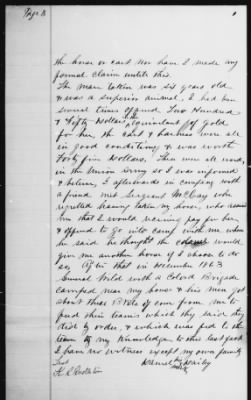 Page 8
the horse or cart nor have I made any
formal claim until this.
The mare taken was six years old
& was a superior animal, I had been
several times offered Two Hundred
& Fifty Dollars equivalent of gold
for her, the cart & harness were all
in good condition & was worth
Forty five Dollars. There were all used,
in the Union Army so I was informed
& believe, I afterwards in company with
a friend met Sergent McCray who
regretted having taken my horse, who
him that I would pay for her
& offered to go into camp with me when
he said he thought the would
give me another horse if I chose to do
so, After that in December 1863
General Wild with a Colord Brigade
camped near my house & his men got
about three Bbls of corn from me to
feed their teams which they said they
did by order, & which was fed to the
team by my Knowledge to this last
I have no witness except my own family
Test
his
mark